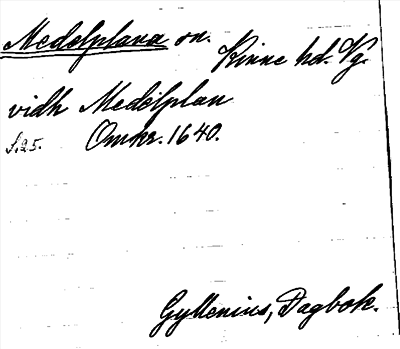 Medelplana sn.
Kinne hd. Vg.
vidh Medelplan
s.25. Omkr. 1640.
Gyllenius, Dagbok.